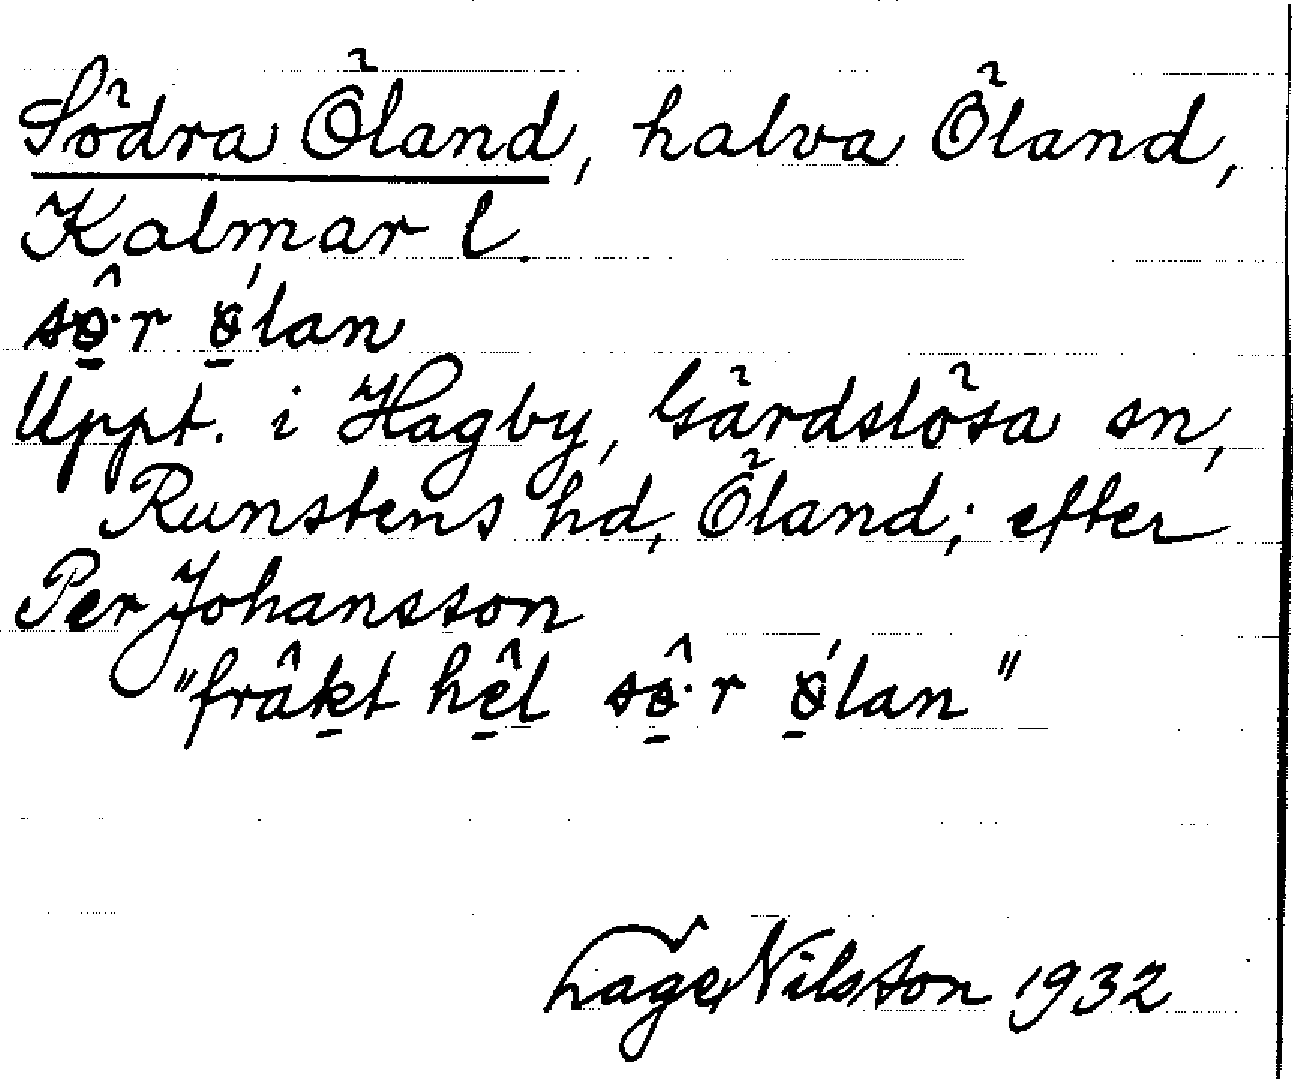 Södra Öland, halva Öland,
Kalmar l.
sö̂·r ö́lan
Uppt. i Hagby, Gärdslösa sn,
Runstens hd, Öland; efter
Per Johansson
"frâk̠t hê̠l sö̠̂·r ö̠́lan"
Nilsson 1932